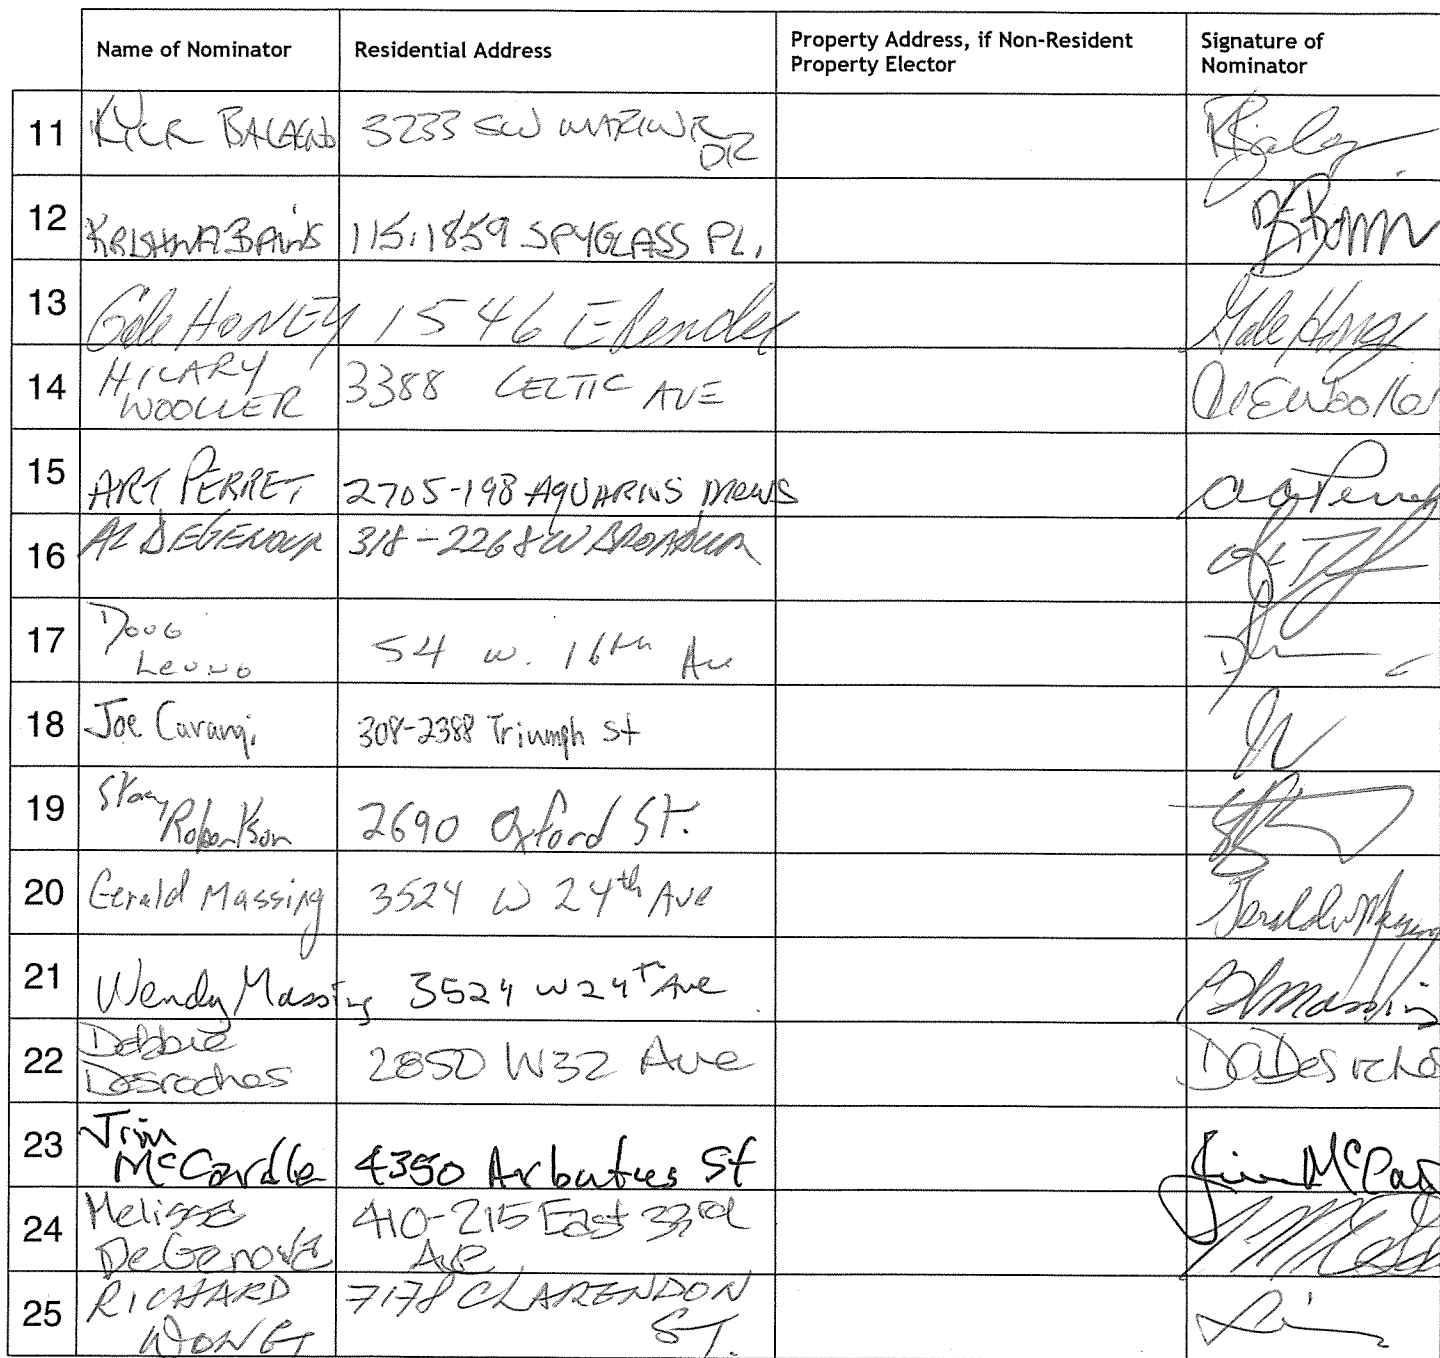 Name of Nominator Residential Address Property Address, if Non-Resident Property Elector Signature of Nominator
11 3233 SW MARINE DR
12 KRISHNA BAINS 115-1859 SPYGLASS PL.
13 Gale HONEY 1546 E Gale Honey
14 HILARY WOOLLER 3388 CELTIC AVE
15 ART PERRET 2705-198 AQUARIUS MEWS
16 AL DEGENOVA 318-2268 W BROADWAY
17 DOUG LEUNG 54 W. 16th Av
18 Joe 308-2388 Triumph St
19 Robertson 2690 Oxford St.
20 Gerald Massing 3524 W 24th Ave Gerald Massing
21 Wendy Massing 3524 W 24th Ave
22 Debbie Desroches 2850 W32 Ave
23 Jim McCardle 4350 Arbutus St Jim
24 Melissa DeGenova 410-215 East 33rd Ave
25 RICHARD WONG 7178 CLARENDON ST.